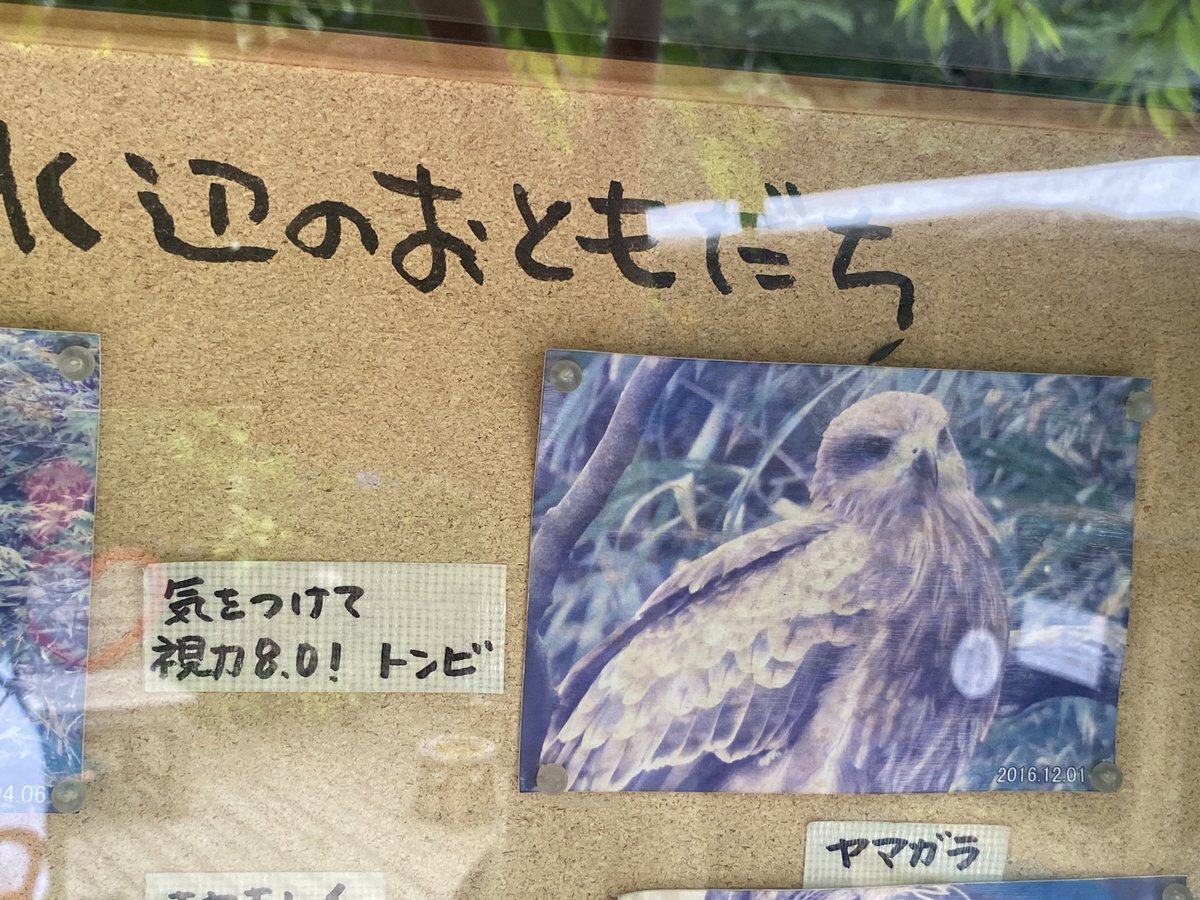 水辺のおともだち
気をつけて
視力8.0! トンビ
2016.12.01
ヤマガラ